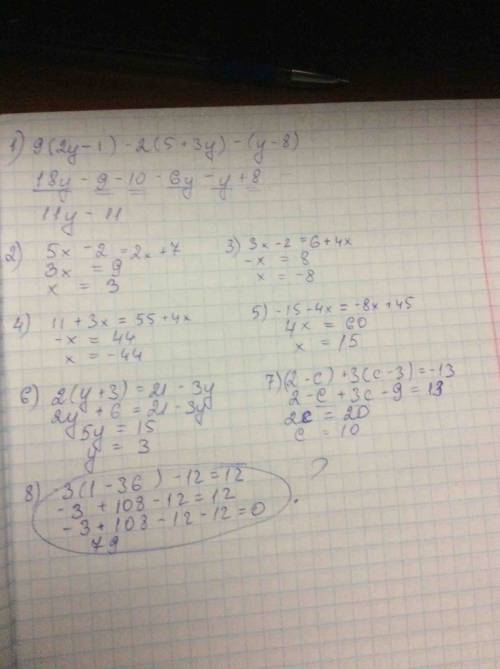 1) 9(2y-1) -2(5+3y) -(y-8)
18y - 9 - 10 - 6y - y + 8
11y - 11
2) 5x - 2 = 2x + 7
3x = 9
x = 3
3) 3x - 2 = 6 + 4x
-x = 8
x = -8
4) 11 + 3x = 55 + 4x
-x = 44
x = -44
5) -15 - 4x = -8x + 45
4x = 60
x = 15
6) 2(y+3) = 21 - 3y
2y + 6 = 21 - 3y
5y = 15
y = 3
7) (2-c) + 3(c-3) = -13
2 - c + 3c - 9 = 13
2c = 20
c = 10
8) -3(1-36) - 12 = 12
-3 + 108 - 12 = 12
-3 + 108 - 12 - 12 = 0
79
?